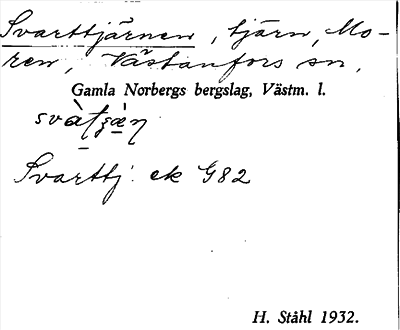 Svarttjärnen, tjärn, Mo-
ren, Västanfors sn,
Gamla Norbergs bergslag, Västm. l.
Svarttj. ek G82
H. Ståhl 1932.